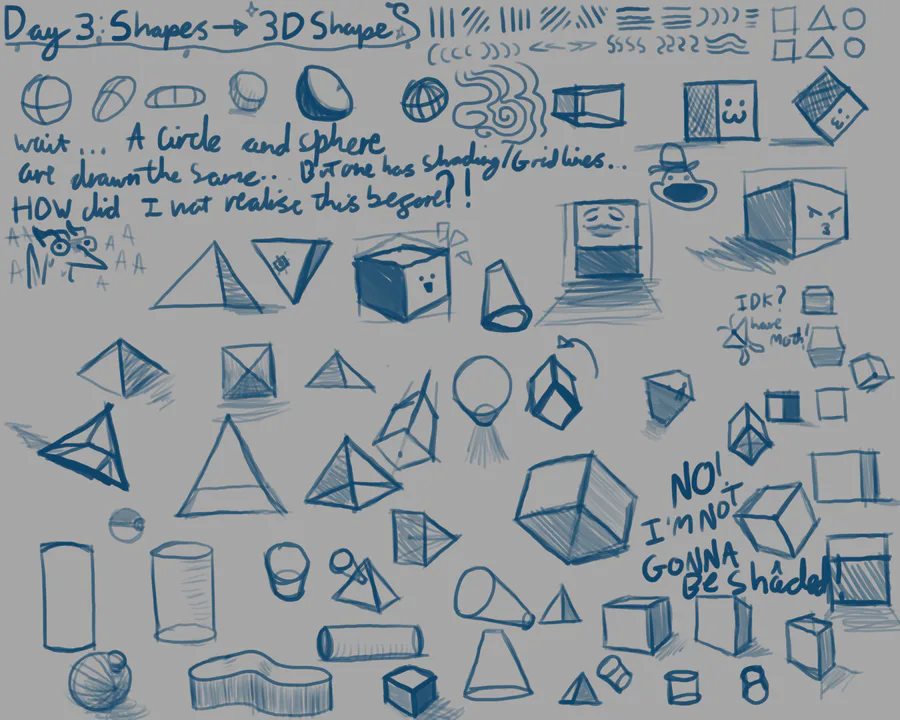 Day 3: Shapes → 3D Shapes
wait... A Circle and sphere
are drawn the same.. But one has shading/Gridlines...
HOW did I not realise this before?!
A A A A A A A
IDK?
have
Moth!
NO!
I'M NOT
GONNA
Be shâded